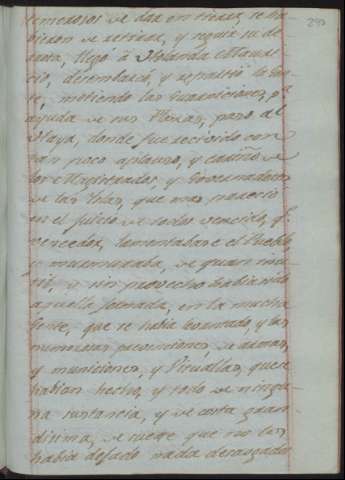 temerosos de dar en tierra, se ha
bieron de retirar, y seguir su de
rrota, llegó á Holanda el Conde
desembarcó, y repartió la Gen
te, metiendo las Guarniciones, pª
ayuda de sus Plazas, pasó al
Haya, donde fue recivido con
tan poco aplauso, y cariño de
los Magistrados, y Procuradores
de las Yslas, que mas pareció
en el juicio de todos vencido, qᵉ
vencedor, lamentabase el Pueblo
y murmuraba, de quan inu
til, y sin provecho habia sido
aquella Jornada, en la mucha
Gente, que se habia levantado, y las
numerosas prevenciones, de armas,
y municiones, y Vituallas, que se
habian hecho, y todo de ningu
na sustancia, y de costa gran
disima, de suerte que no les
habia dejado nada descargados